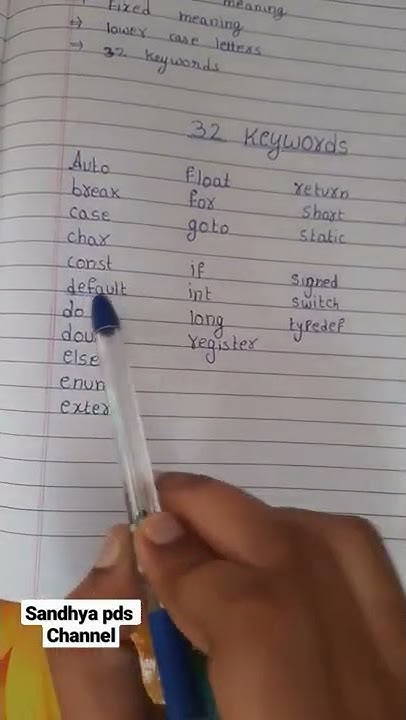 meaning
Fixed meaning
=> lower case letters
=> 32 keywords
32 Keywords
Auto float return
break for short
case goto static
char
const if signed
default int switch
do long typedef
dou register
else
enum
exter
Sandhya pds
Channel